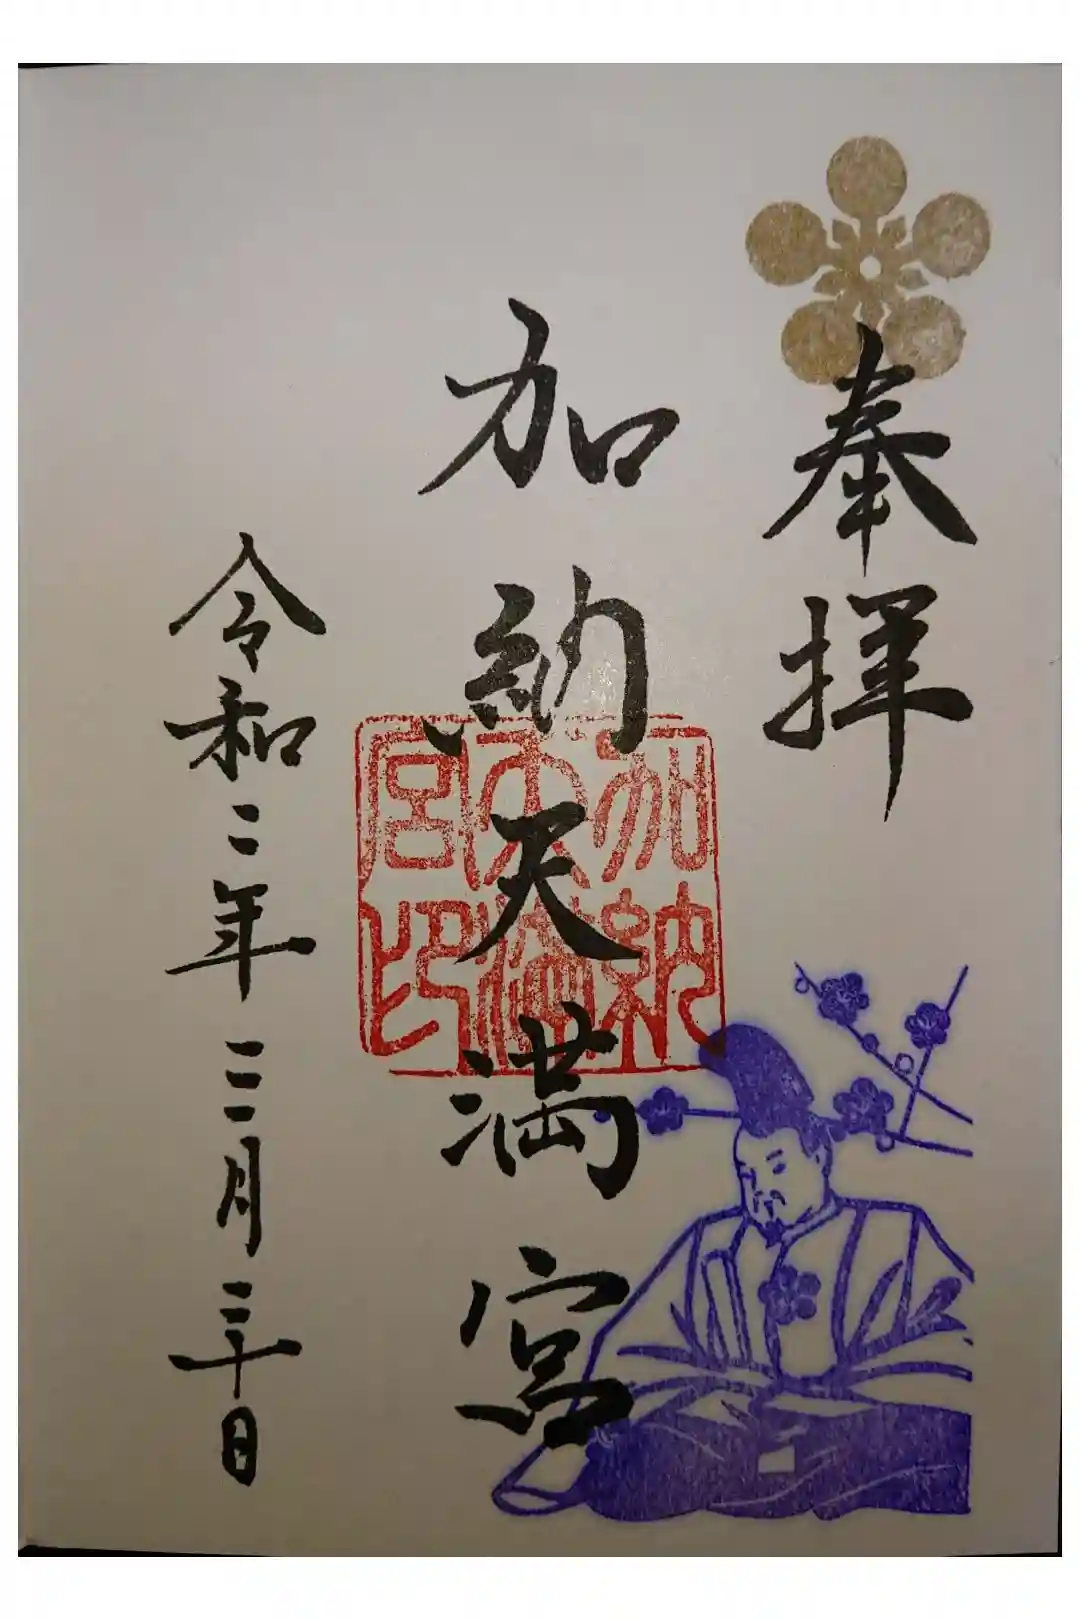 奉拝
加納天満宮
加納
天満
宮印
令和二年三月三十日